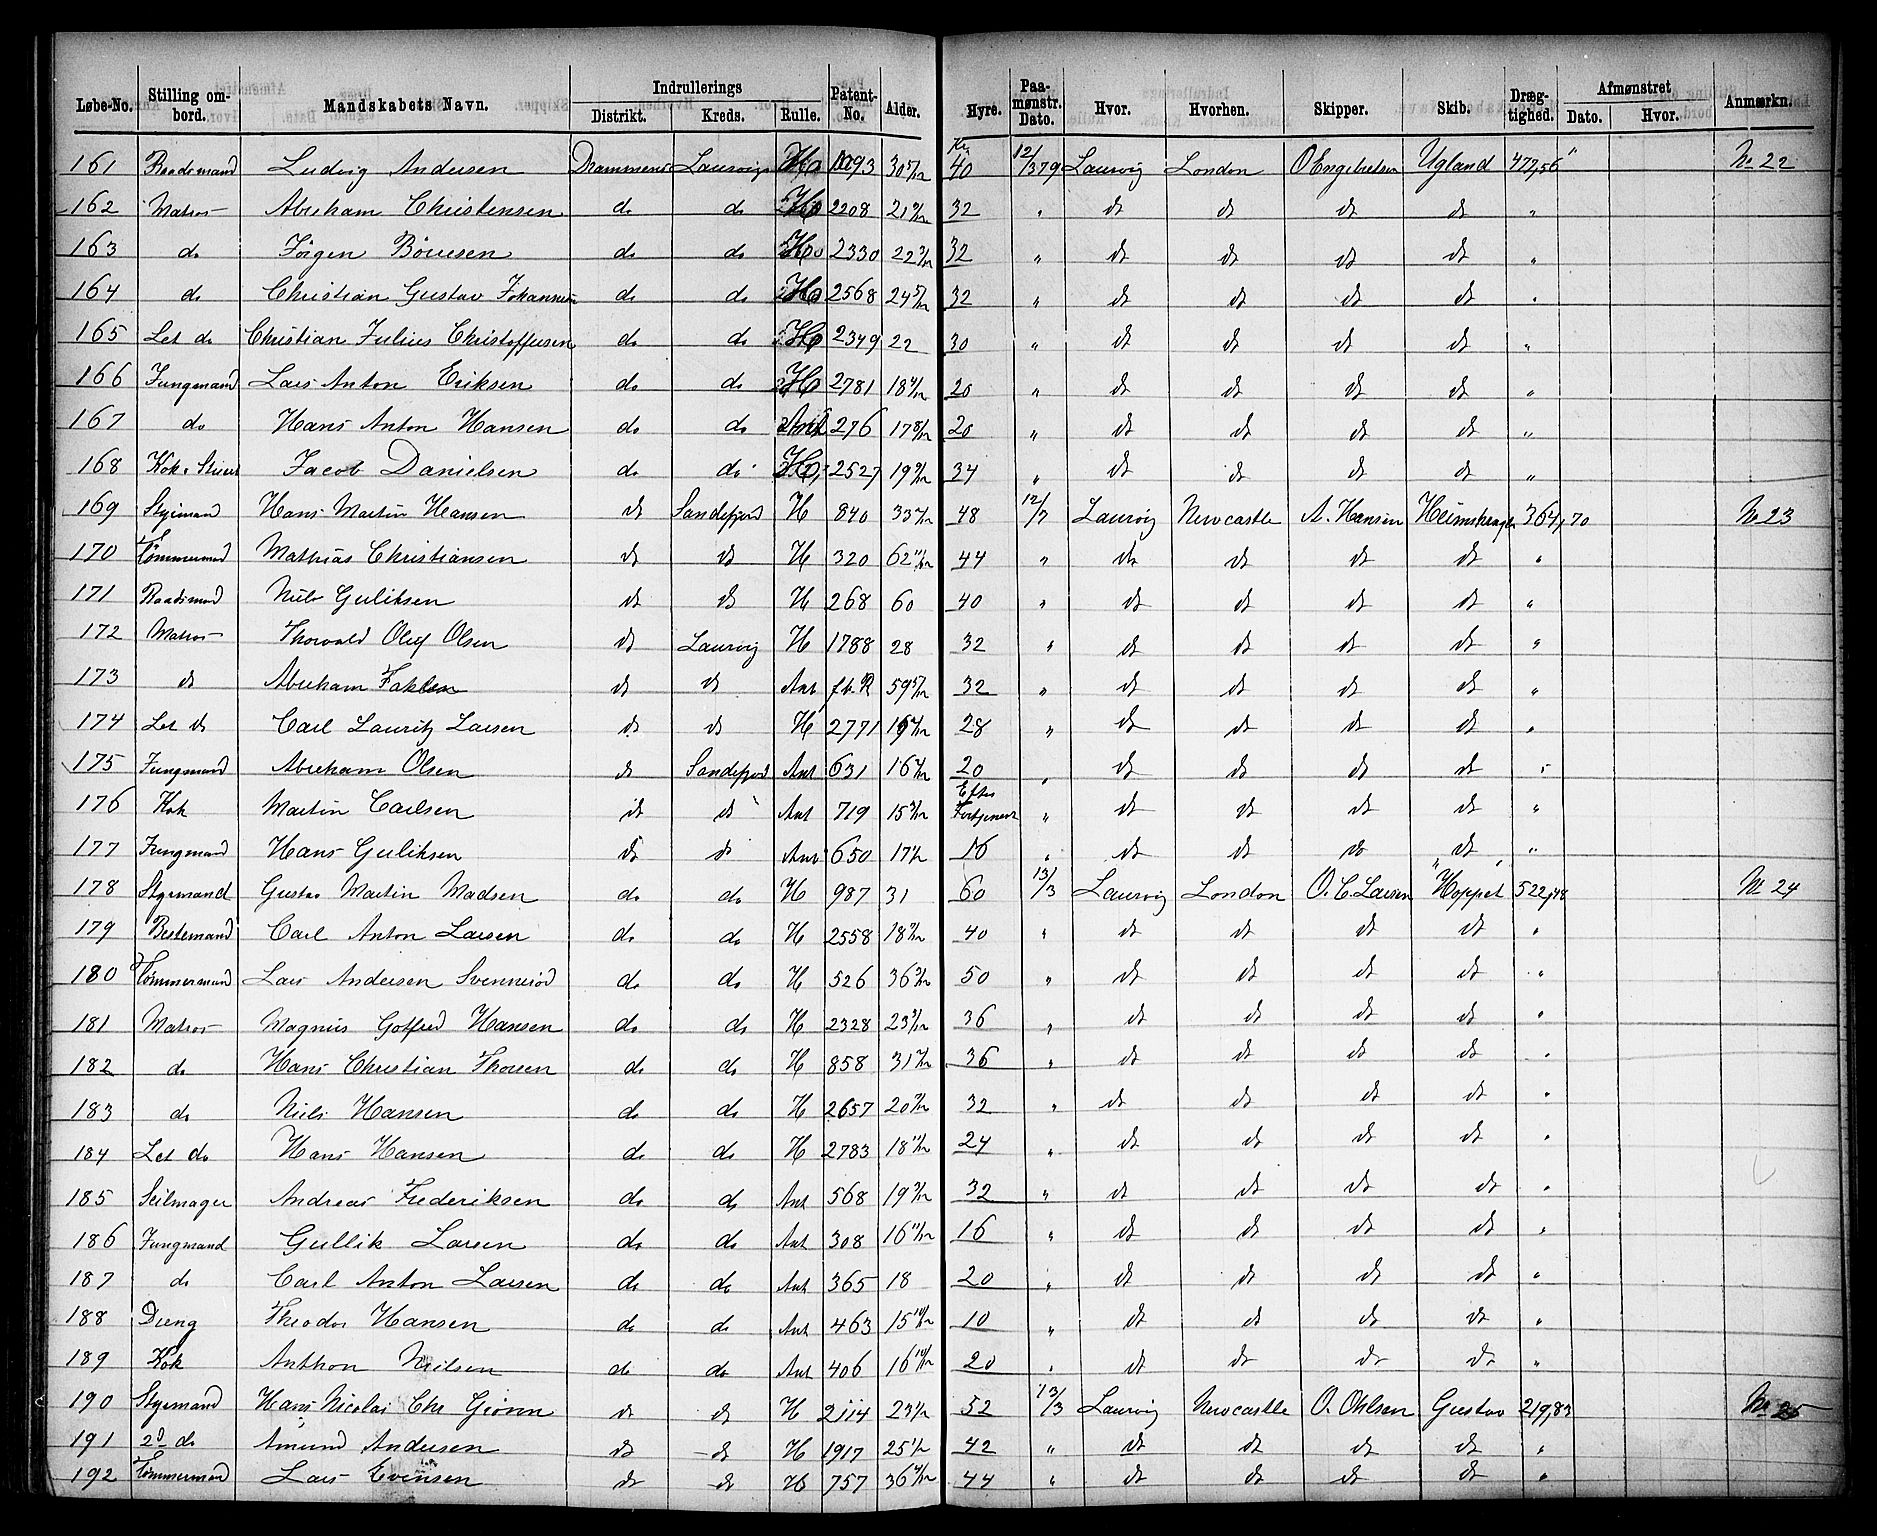 Løbe-No. Stilling ombord. Mandskabets Navn. Indrullerings Distrikt. Kreds. Rulle. Patent-No. Alder. Hyre. Paamønstr. Dato. Hvor. Hvorhen. Skipper. Skib. Drægtighed. Afmønstret Dato. Hvor. Anmærkn.
161 Baadsmand Ludvig Andersen Drammens Laurvigs H 1093 30 Kr 40 12/3 79 Laurvig London O Engebretsen Ugland 472,56 No 22
162 Matros Abraham Christensen do do H 2208 21 32 " dt dt dt dt "
163 do Jörgen do do 2330 22 32 " dt dt dt dt "
164 do Christian Gustav Johannesen do do H 2568 24 32 " dt dt dt dt "
165 Let do Christian Julius Christoffersen do do H 2349 22 30 " dt dt dt dt "
166 Jungmand Lars Anton Eriksen do do H 2781 18 20 " dt dt dt dt "
167 do Hans Anton Hansen do do Ant 276 17 8/12 20 " dt dt dt dt "
168 Kok Jacob Danielsen do do H 2527 19 34 " dt dt dt dt "
169 Styrmand Hans Martin Hansen dt Sandefjord H 840 33 48 12/3 Laurvig Newcastle A. Hansen 364,70 No 23
170 Tömmermand Mathias Christiansen dt dt H 320 62 44 " dt dt dt dt "
171 Baadsmand Nils Guliksen dt dt H 268 60 40 " dt dt dt dt "
172 Matros Thorvald Oluf Olsen dt Laurvig H 1788 28 32 " dt dt dt dt "
173 dt Abraham dt dt Ant 59 32 " dt dt dt dt "
174 Let dt Carl Lauritz Larsen dt dt H 2771 28 " dt dt dt dt "
175 Jungmand Abraham Olsen dt Sandefjord Ant 631 16 20 " dt dt dt dt "
176 Kok Martin Carlsen dt dt Ant 719 15 Efter Fortjeneste " dt dt dt dt "
177 Jungmand Hans Guliksen dt dt Ant 650 17 16 " dt dt dt dt "
178 Styrmand Gustav Martin Madsen do do H 987 31 60 13/3 Laurvig London O. C. Larsen "Hoppet" 522,48 No 24
179 Bestemand Carl Anton Larsen do do H 2558 18 40 " dt dt dt dt "
180 Tömmermand Lars Andersen do do H 526 36 50 " dt dt dt dt "
181 Matros Magnus Gotfred Hansen do do H 2328 23 36 " dt dt dt dt "
182 do Hans Christian Thorsen do do H 858 31 36 " dt dt dt dt "
183 do Niels Hansen do do H 2657 20 32 " dt dt dt dt "
184 Let do Hans Hansen do do H 2783 18 24 " dt dt dt dt "
185 Seilmager Andreas Frederiksen do do Ant 568 19 32 " dt dt dt dt "
186 Jungmand Gullik Larsen do do Ant 308 16 11/12 16 " dt dt dt dt "
187 do Carl Anton Larsen do do Ant 365 18 20 " dt dt dt dt "
188 Dreng Theodor Hansen do do Ant 463 15 10/12 10 " dt dt dt dt "
189 Kok Anthon Nielsen do do Ant 406 16 10/12 20 " dt dt dt dt "
190 Styrmand Hans Nicolai Chr dt dt H 2114 23 52 13/3 Laurvig Newcastle O. Ohlsen Gustav 219,83 No 25
191 2d do Amund Andersen dt dt H 1917 25 42 " dt dt dt dt "
192 Tömmermand Lars Evensen dt dt H 757 36 44 " dt dt dt dt "